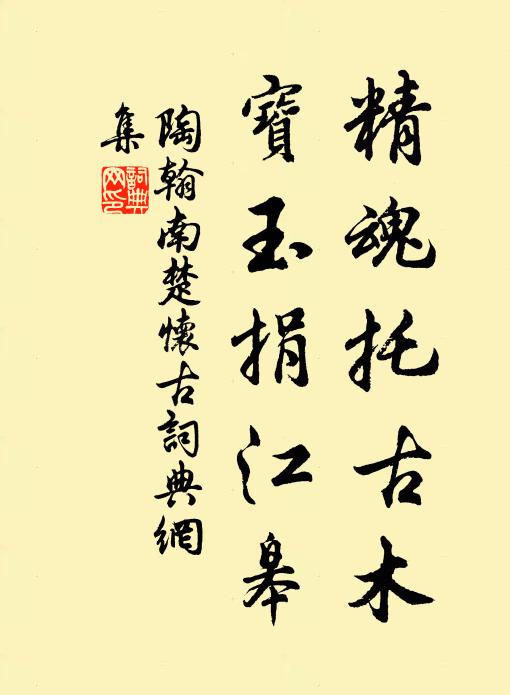 精魂托古木
寶玉捐江皋
陶翰南楚懷古詞典網
集
詞典网印